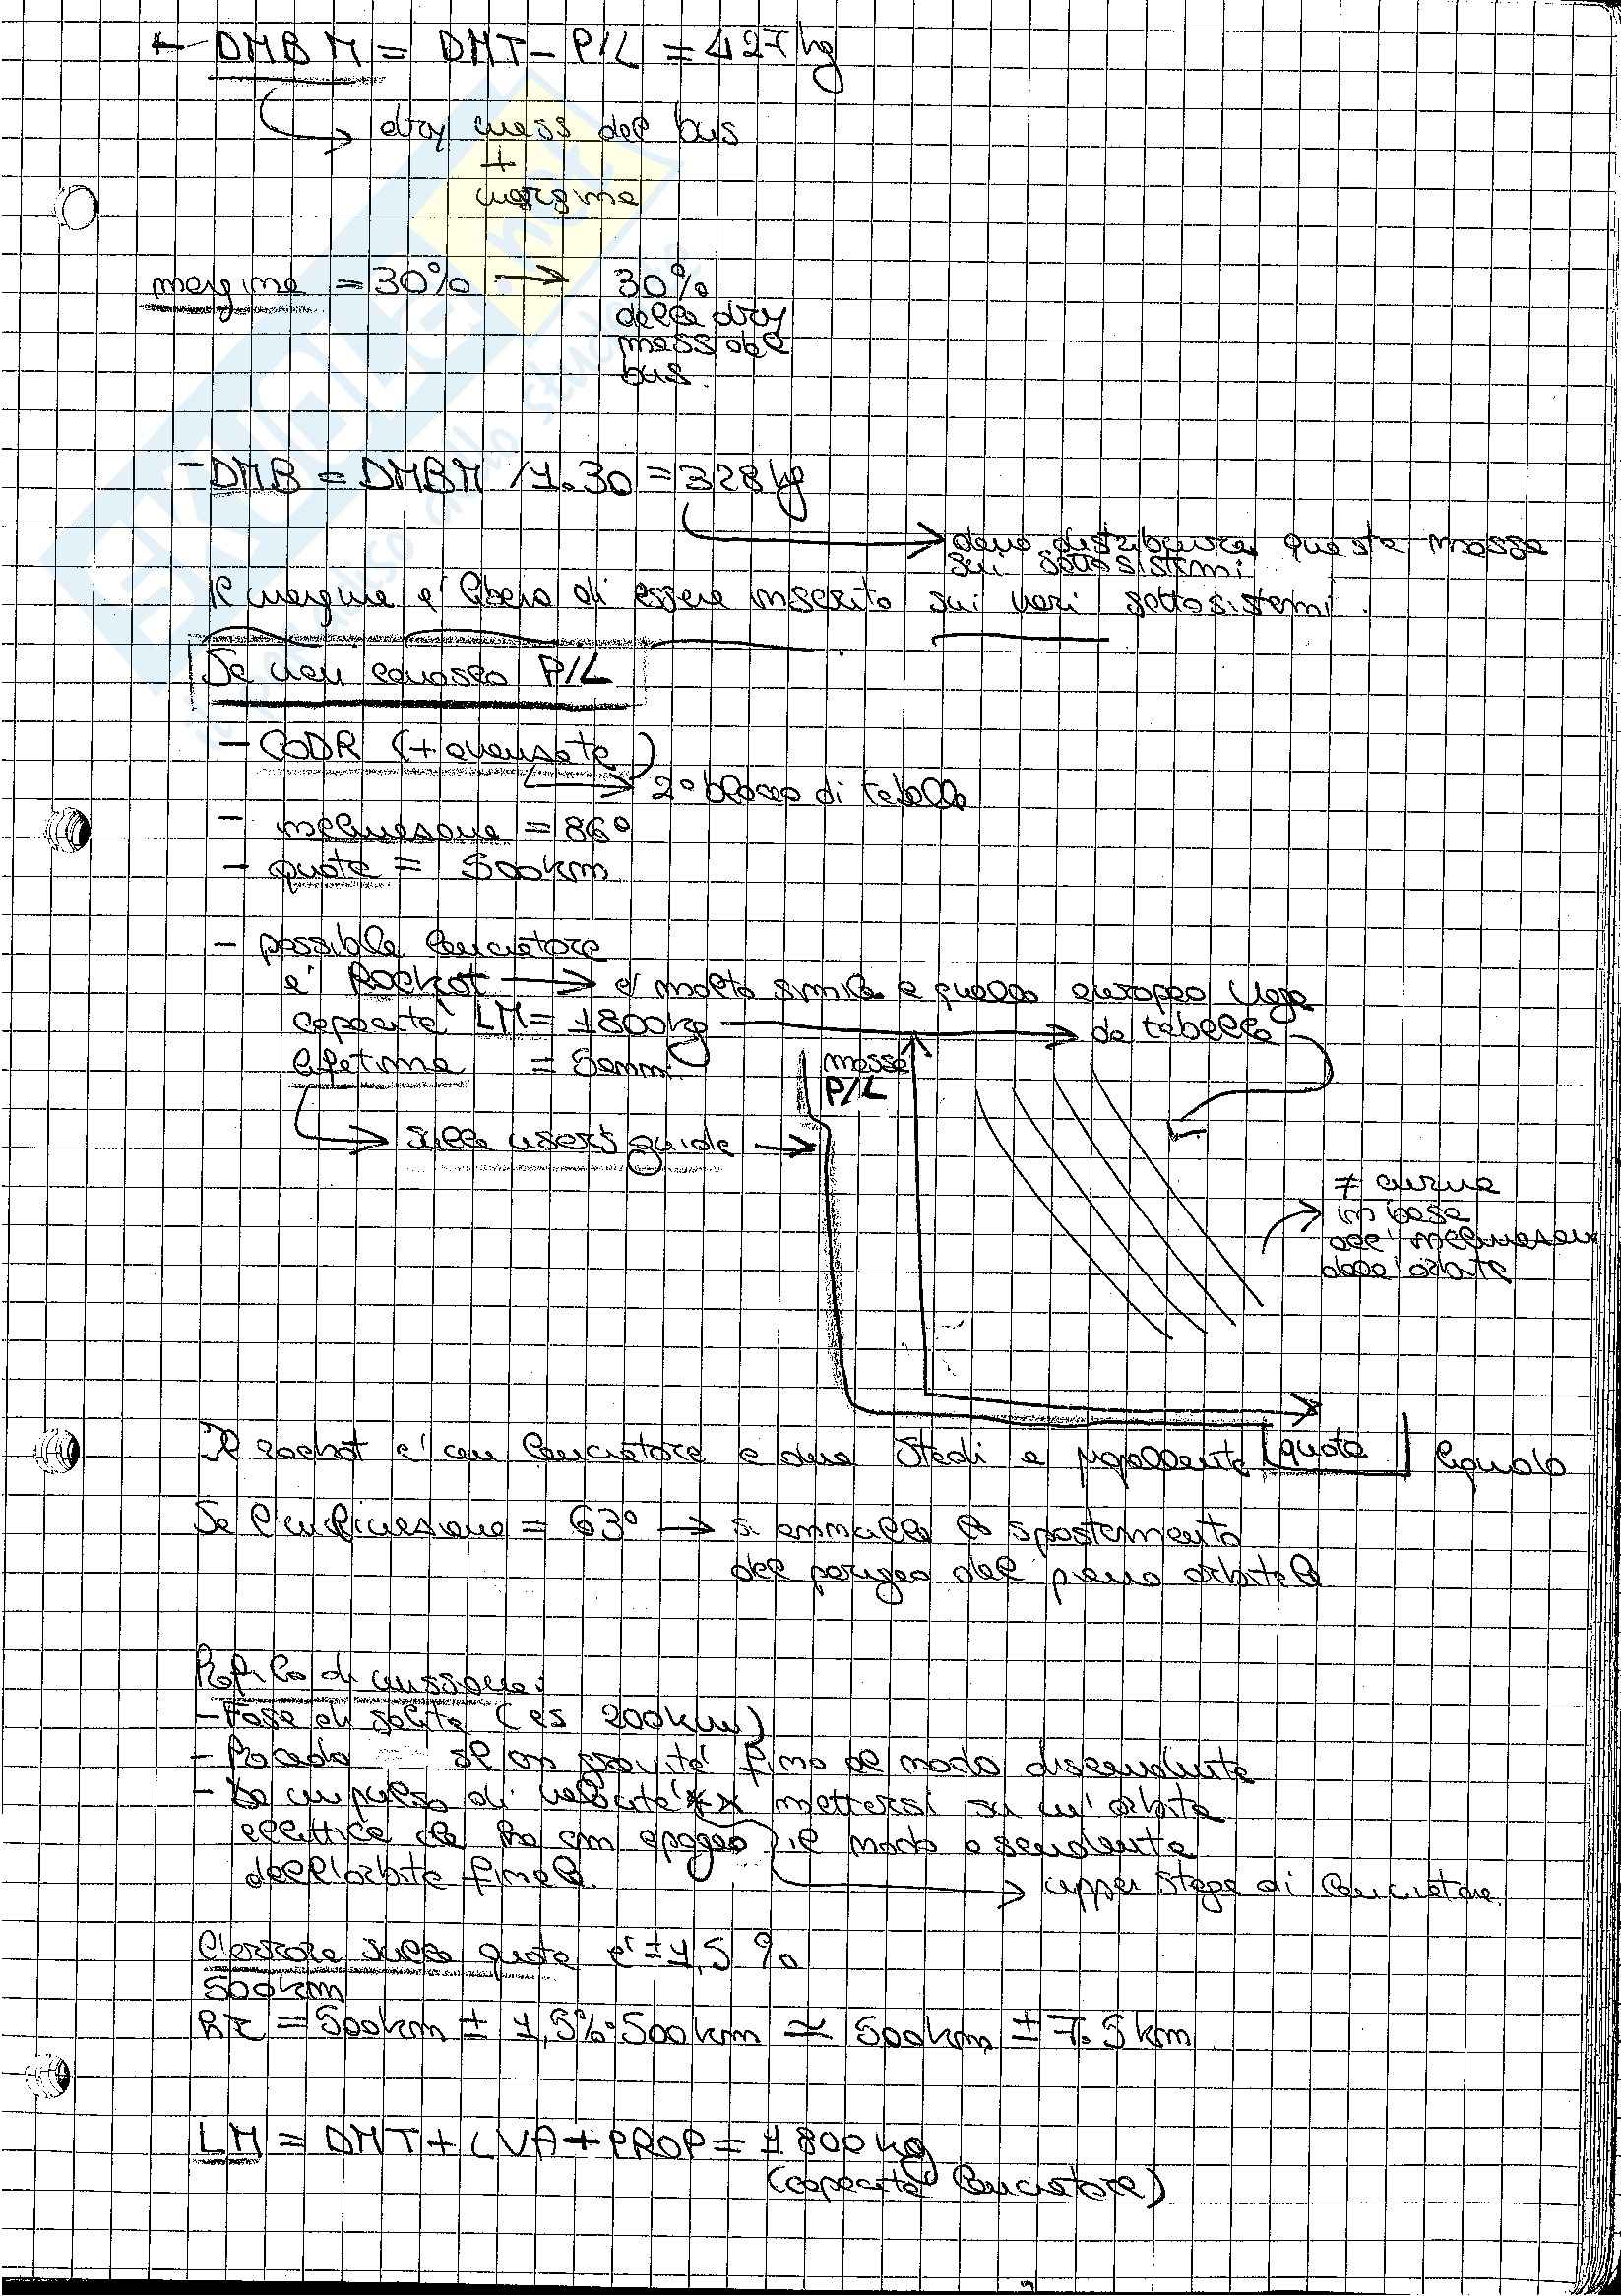 ← DMBM = DMT - P/L = 427 kg
dry mass del bus
+
margine
margine = 30% → 30%
della dry
mass del
bus.
- DMB = DMBM / 1.30 = 328 kg
devo distribuire questa massa
sui sottosistemi
Il margine e' libero di essere inserito sui vari sottosistemi.
Se non conosco P/L
- CODR (+ avanzata)
2° blocco di tabella
- inclinazione = 86°
- quota = 500km
- possibile lanciatore
e' Rockot → e' molto simile a quello europeo Vega
capacità LM = 1800kg → da tabella
lifetime = 5anni
massa
P/L
sulla user's guide →
≠ curve
in base
all'inclinazion
dell'orbita
quota
Il rockot e' un lanciatore a due stadi a propellente liquido
Se l'inclinazione = 63° → si annulla lo spostamento
del perigeo del piano orbitale
Profilo di missione:
- Fase di salita (es 200km)
- gravità fino al nodo discendente
- Da impulso di velocità x mettersi su un'orbita
ellittica che ha con apogeo il nodo ascendente
dell'orbita finale.
upper stage di lanciatore
L'errore sulla quota e' = 1,5 %
500km
= 500km ± 1,5% · 500km ≃ 500km ± 7.5km
LM = DMT + LVA + PROP = 1800kg
(capacità lanciatore)